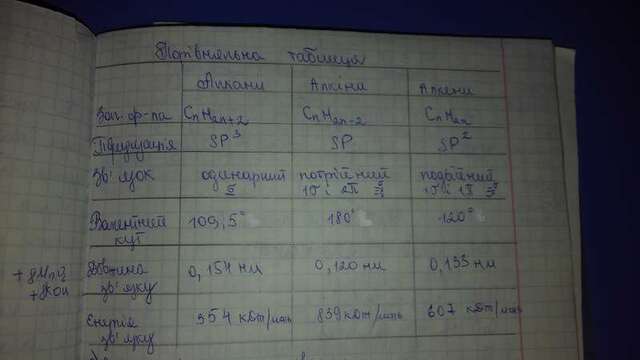 Порівняльна таблиця
Алкани Алкіни Алкени
Заг. ф-ла CnH2n+2 CnH2n-2 CnH2n
Гібридизація SP³ SP SP²
Зв'язок одинарний потрійний подвійний
Валентний 109,5° 180° 120°
кут
Довжина 0,154 нм 0,120 нм 0,133 нм
зв'язку
+ KOH
Енергія 354 кДж/моль 839 кДж/моль 607 кДж/моль
зв'язку